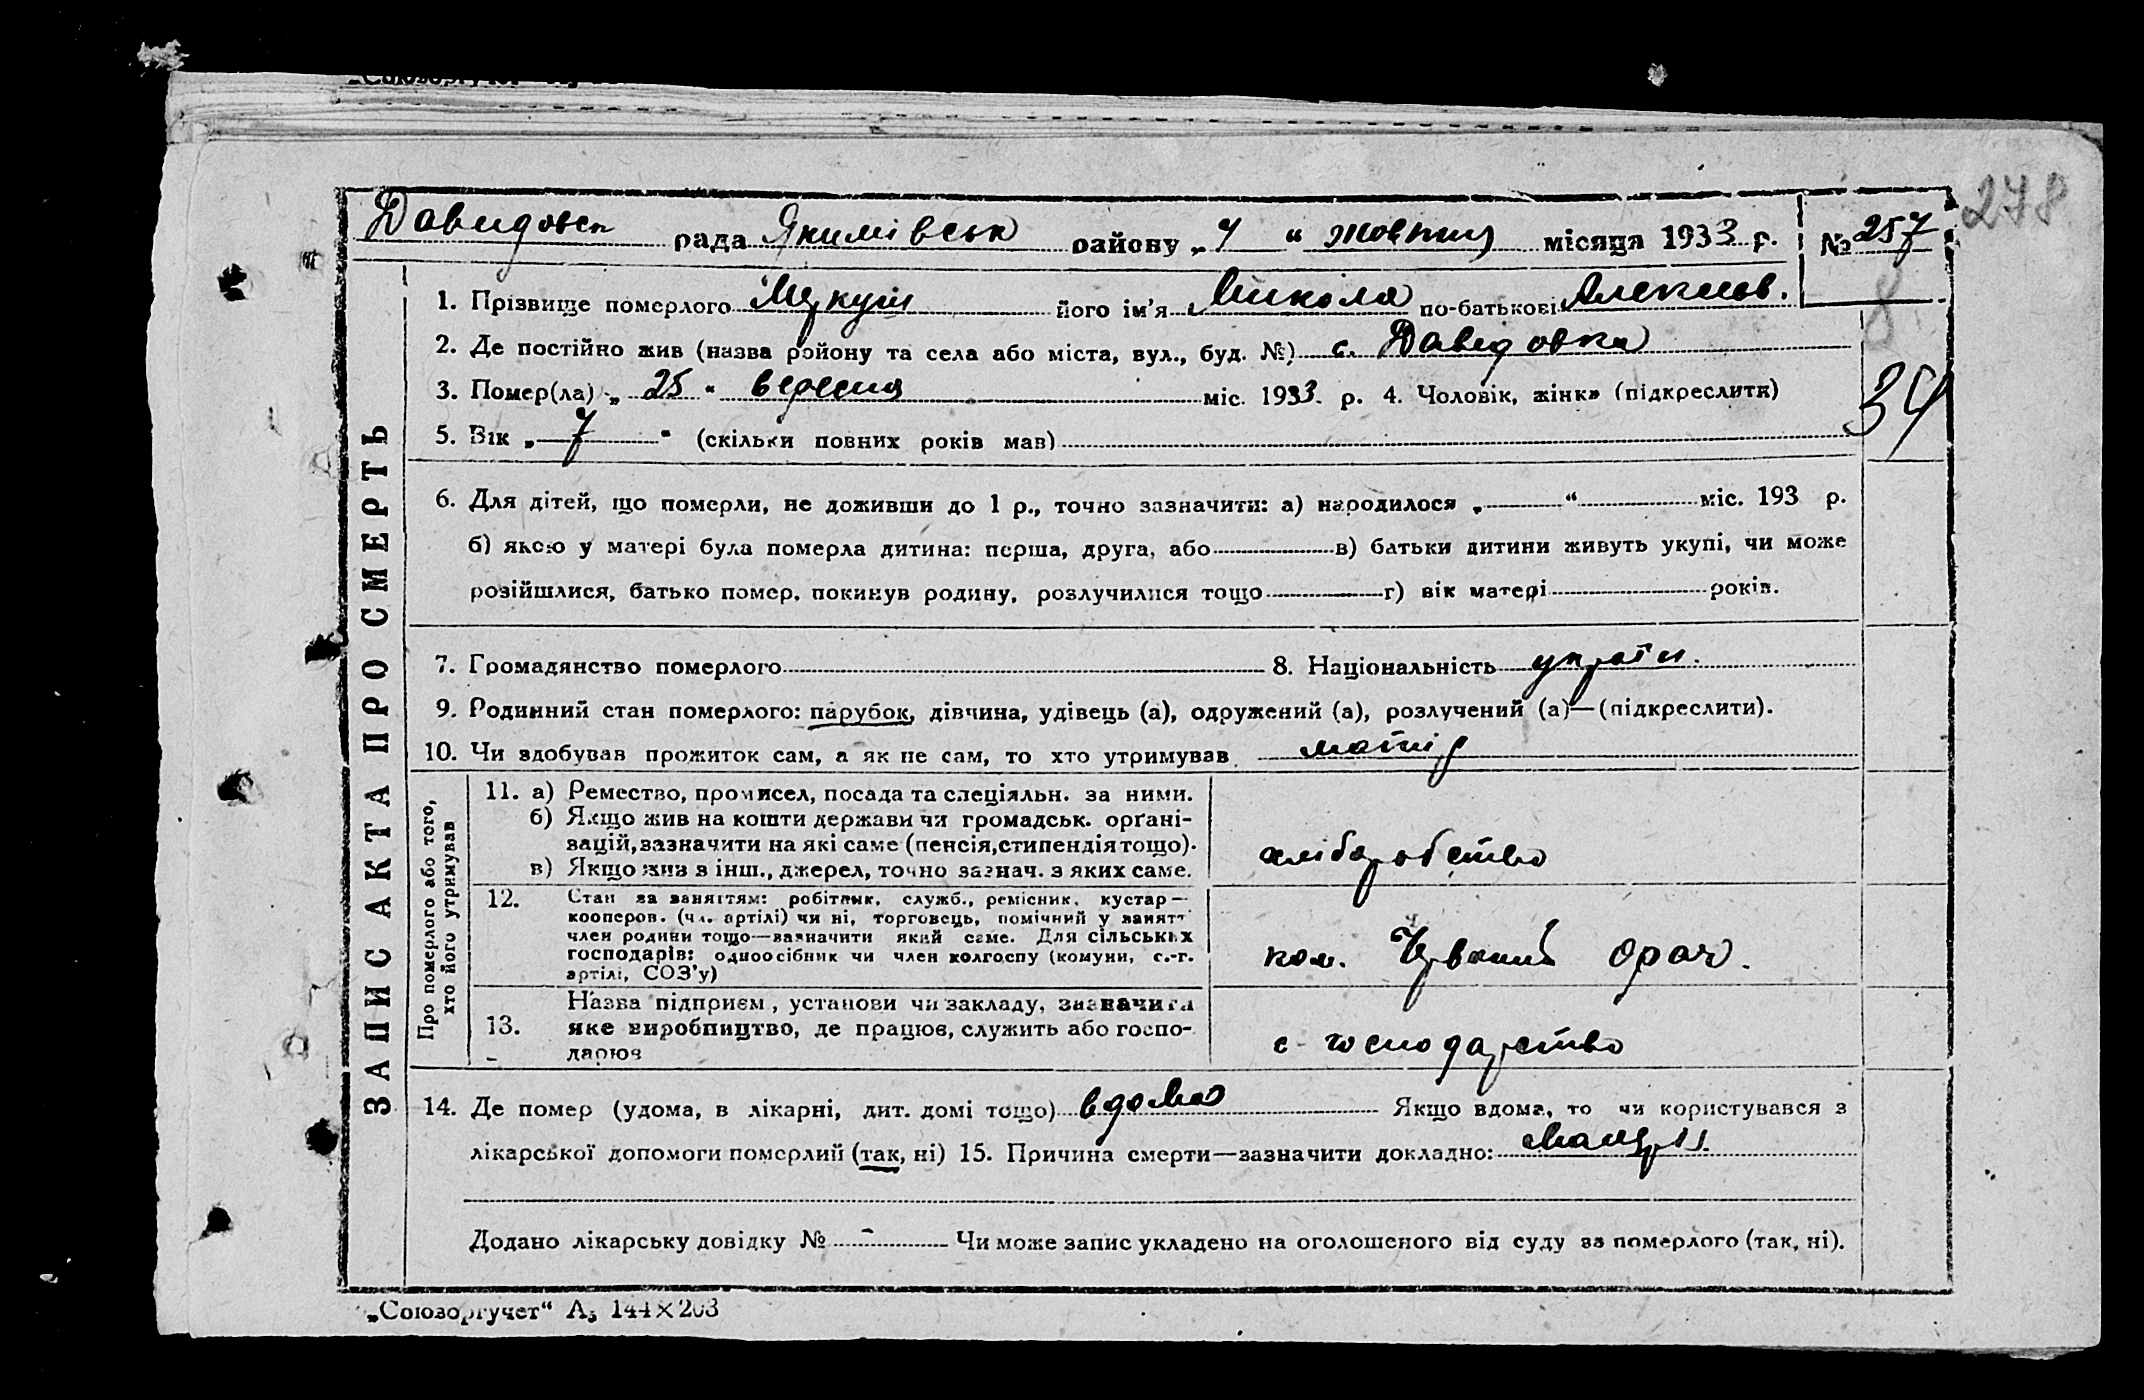 278
Давидовск рада Якимівськ району „4“ жовтня місяця 1933 р. № 257
8
1. Прізвище померлого його ім'я Микола по-батькові Алексієв.
2. Де постійно жив (назва району та села або міста, вул., буд. №) с. Давидовка
3. Помер(ла) „25“ вересня міс. 1933 р. 4. Чоловік, жінка (підкреслити)
34
5. Вік „7“ (скільки повних років мав)
6. Для дітей, що померли, не доживши до 1 р., точно зазначити: а) народилося „ “ міс. 193 р.
б) якою у матері була померла дитина: перша, друга, або в) батьки дитини живуть укупі, чи може
розійшлися, батько помер, покинув родину, розлучилися тощо г) вік матері років.
7. Громадянство померлого 8. Національність україн.
9. Родинний стан померлого: парубок, дівчина, удівець (а), одружений (а), розлучений (а)—(підкреслити).
10. Чи здобував прожиток сам, а як не сам, то хто утримував матір
ЗАПИС АКТА ПРО СМЕРТЬ
Про померлого або того,
хто його утримував
11. а) Ремество, промисел, посада та спеціяльн. за ними.
б) Якщо жив на кошти держави чи громадськ. органі-
зацій, зазначити на які саме (пенсія, стипендія тощо).
в) Якщо жив з інш., джерел, точно зазнач. з яких саме.
хліборобство
12. Стан за заняттям: робітник, служб., ремісник, кустар—
кооперов. (чл. артілі) чи ні, торговець, помічний у занятті
член родини тощо—зазначити який саме. Для сільських
господарів: одноосібник чи член колгоспу (комуни, с.-г.
артілі, СОЗ'у)
кол. Червоний Орач.
13. Назва підприєм, установи чи закладу, зазначити
яке виробництво, де працюв, служить або госпо-
дарюв
с-господарство
14. Де помер (удома, в лікарні, дит. домі тощо) вдома Якщо вдома, то чи користувався з
лікарської допомоги померлий (так, ні) 15. Причина смерти—зазначити докладно:
Додано лікарську довідку № - Чи може запис укладено на оголошеного від суду за померлого (так, ні).
„Союзоргучет“ А5 144×203